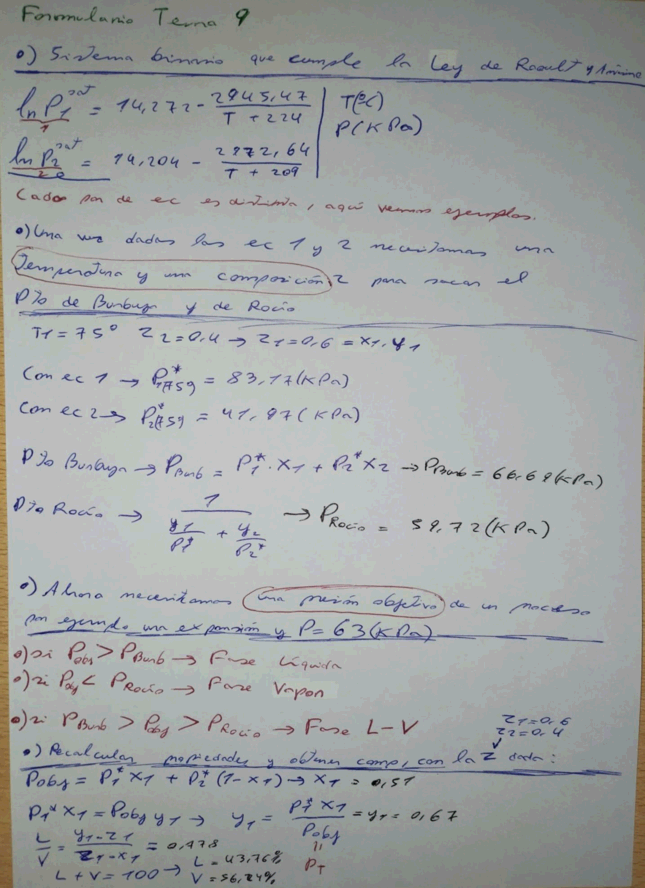 Formulario Tema 9
•) Sistema binario que cumple la Ley de Raoult y Antoine
ln P1^sat = 14,272 - 2945,47 / (T + 224) | T(ºC)
1 | P(KPa)
ln P2^sat = 14,204 - 2972,64 / (T + 209)
Cada par de ec es distinta, aquí vemos ejemplos.
•) Una vez dadas las ec 1 y 2 necesitamos una
temperatura y una composición Z para sacar el
Pto de Burbuja y de Rocío
T1 = 75º Z2 = 0,4 → Z1 = 0,6 = x1, y1
Con ec 1 → P1*(75º) = 83,17 (KPa)
Con ec 2 → P2*(75º) = 41,97 (KPa)
Pto Burbuja → PBurb = P1* · x1 + P2* x2 → PBurb = 66,69 (KPa)
Pto Rocío → 1 / (y1/P1* + y2/P2*) → PRocío = 59,72 (KPa)
•) Ahora necesitamos una presión objetivo de un proceso
por ejemplo una expansión y P = 63 (KPa)
•) si Pobj > PBurb → Fase Líquida
•) si Pobj < PRocío → Fase Vapor
•) si PBurb > Pobj > PRocío → Fase L-V
Z1 = 0,6
Z2 = 0,4
•) Recalcular propiedades y obtener comp, con la Z dada:
Pobj = P1* x1 + P2* (1 - x1) → x1 = 0,51
P1* x1 = Pobj y1 → y1 = P1* x1 / Pobj = y1 = 0,67
L/V = (y1 - Z1) / (Z1 - x1) = 0,778
PT
L + V = 100 → L = 43,76% V = 56,24%